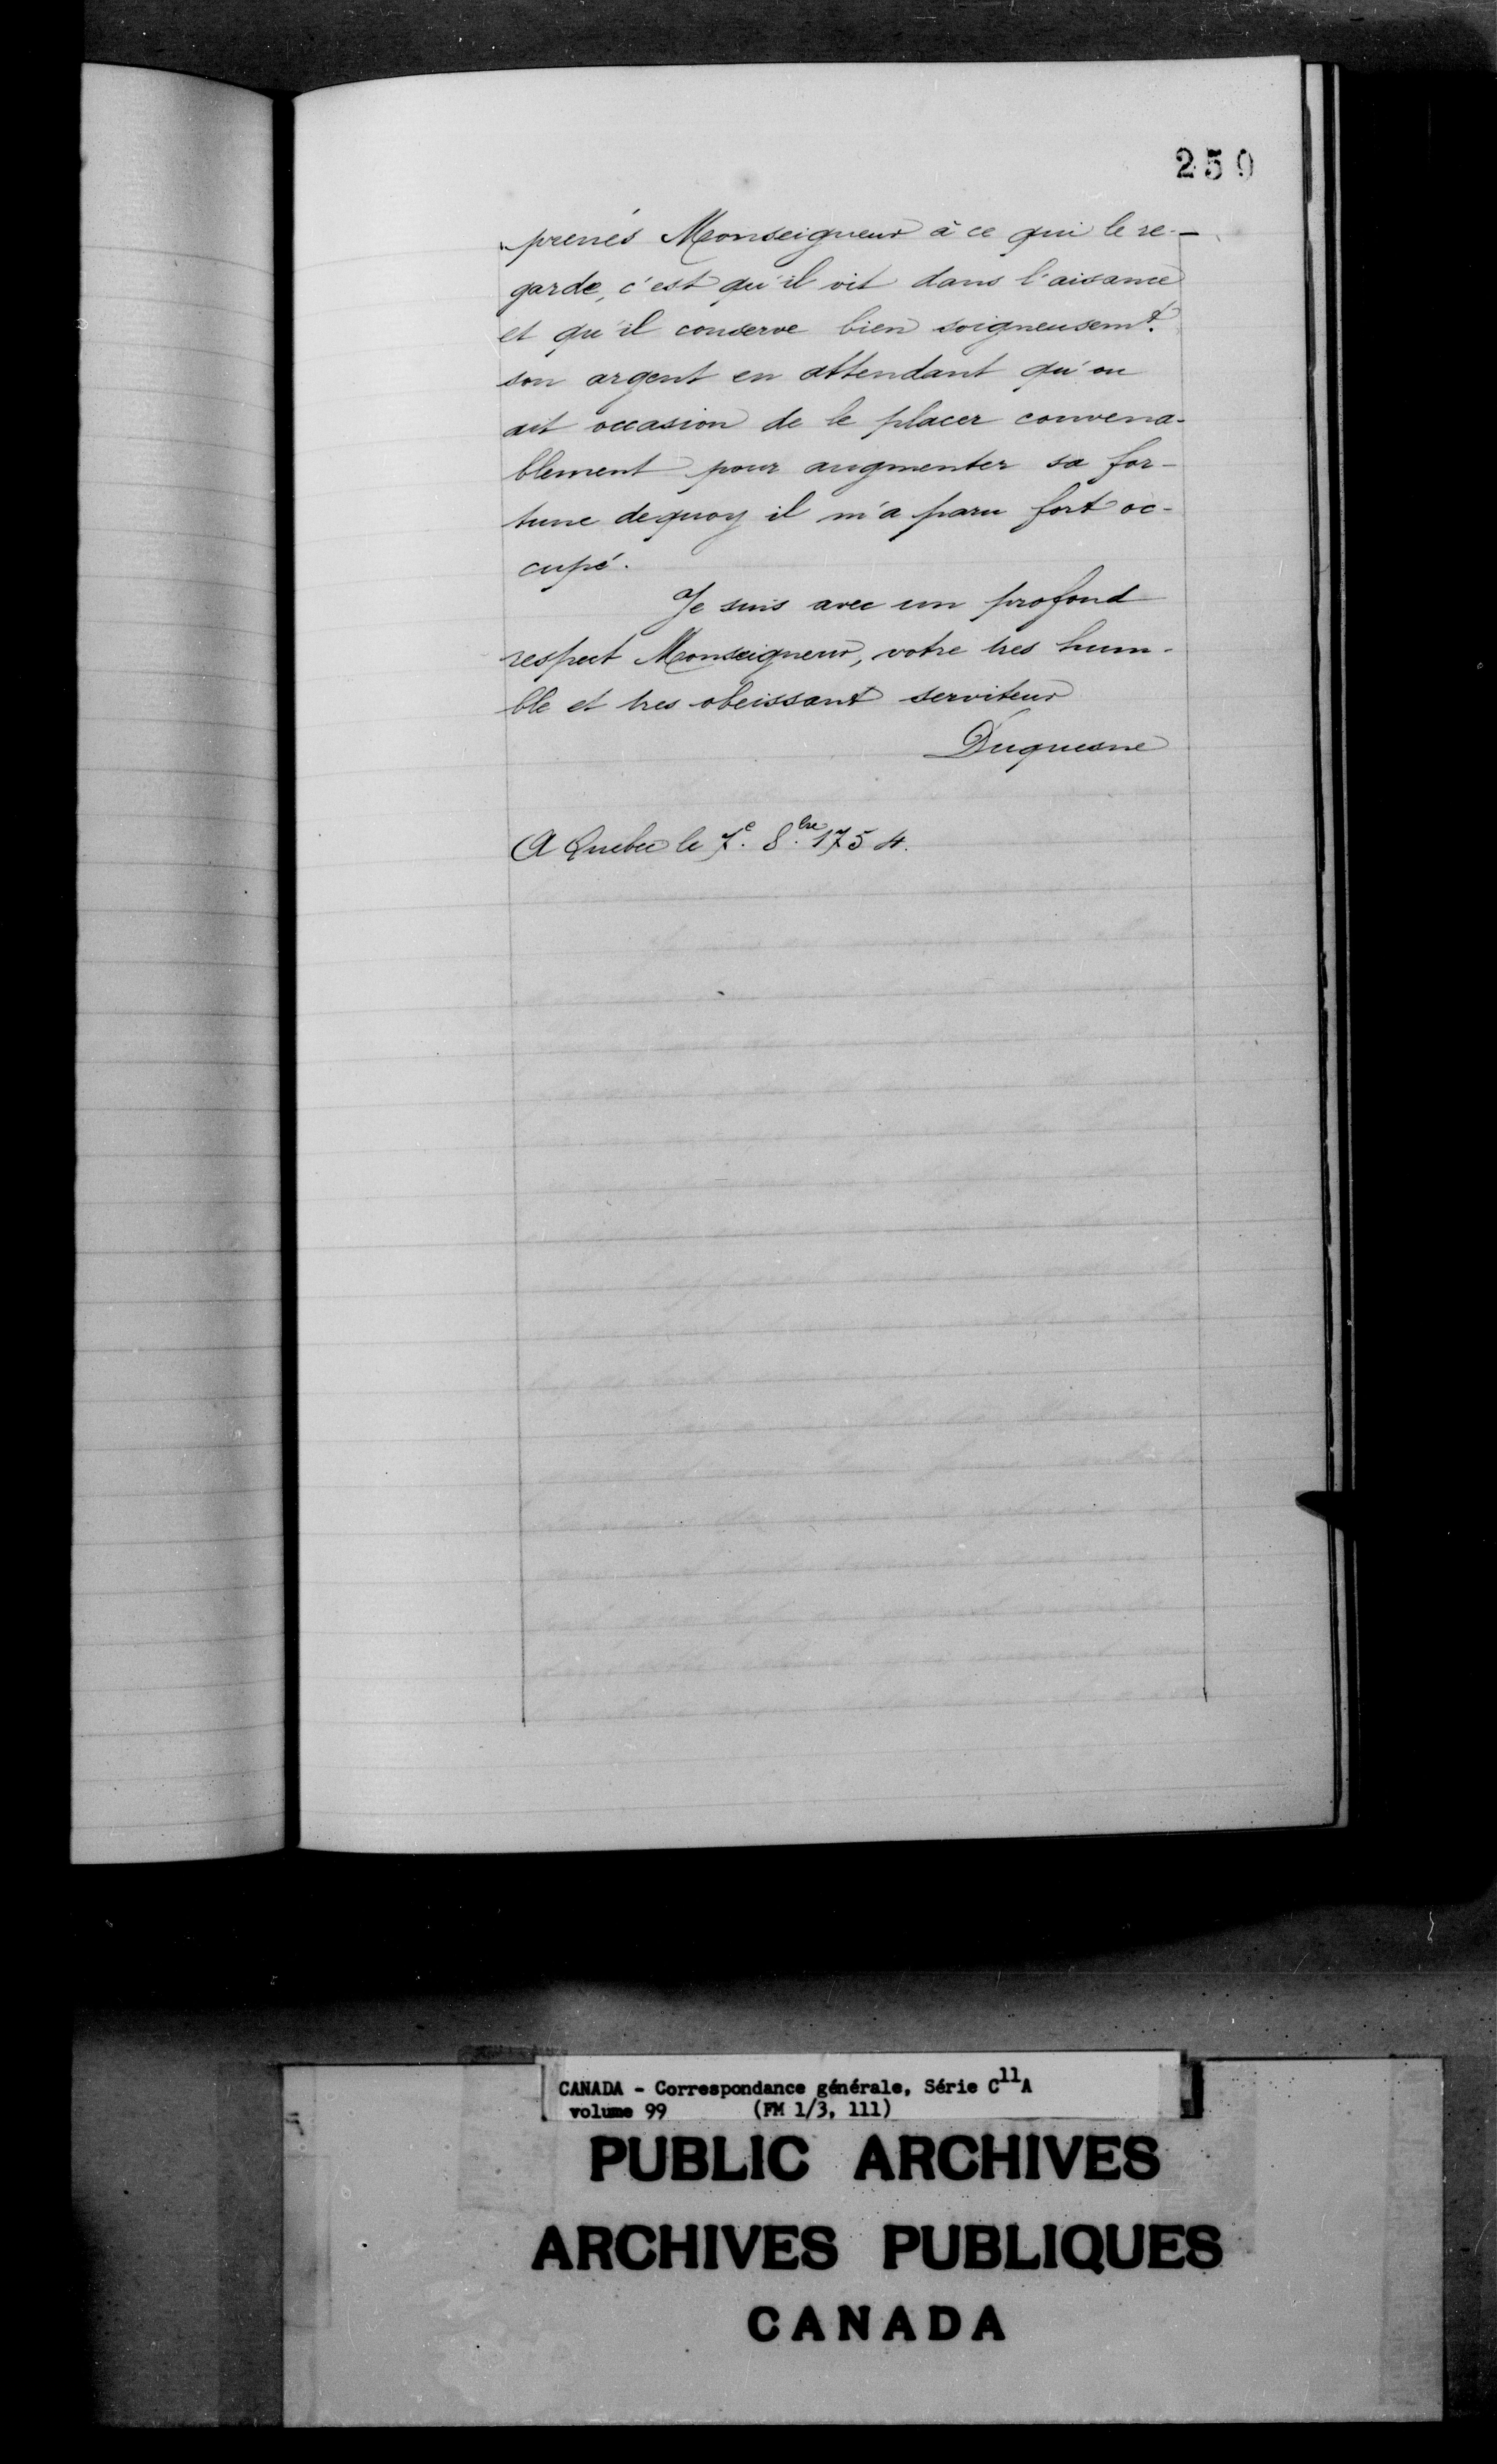 259
prenés Monseigneur à ce qui le re-
garde, c'est qu'il vit dans l'aisance
et qu'il conserve bien soigneusemt.
son argent en attendant qu'on
ait occasion de le placer convena-
blement pour augmenter sa for-
tune dequoy il m'a paru fort oc-
cupé.
Je suis avec un profond
respect Monseigneur, votre tres hum-
ble et tres obeissant serviteur
Duquesne
A Quebec le 7e. 8.bre 1754.
CANADA - Correspondance générale, Série C11A
volume 99 (FM 1/3, 111)
PUBLIC ARCHIVES
ARCHIVES PUBLIQUES
CANADA